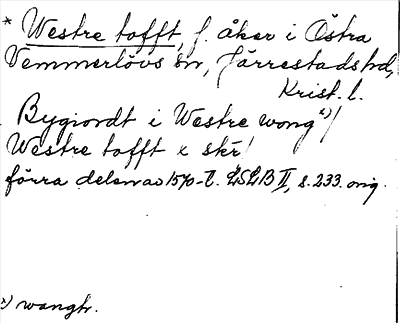 * Westre tofft, f. åker i Östra
Vemmerlövs sn, Järrestads hd,
Krist. l.
Bygiordt i Westre wong ¹)/
Westre tofft x skr/
förra delen av 1570-t. LSLB II, s. 233. orig.
¹) wangh.